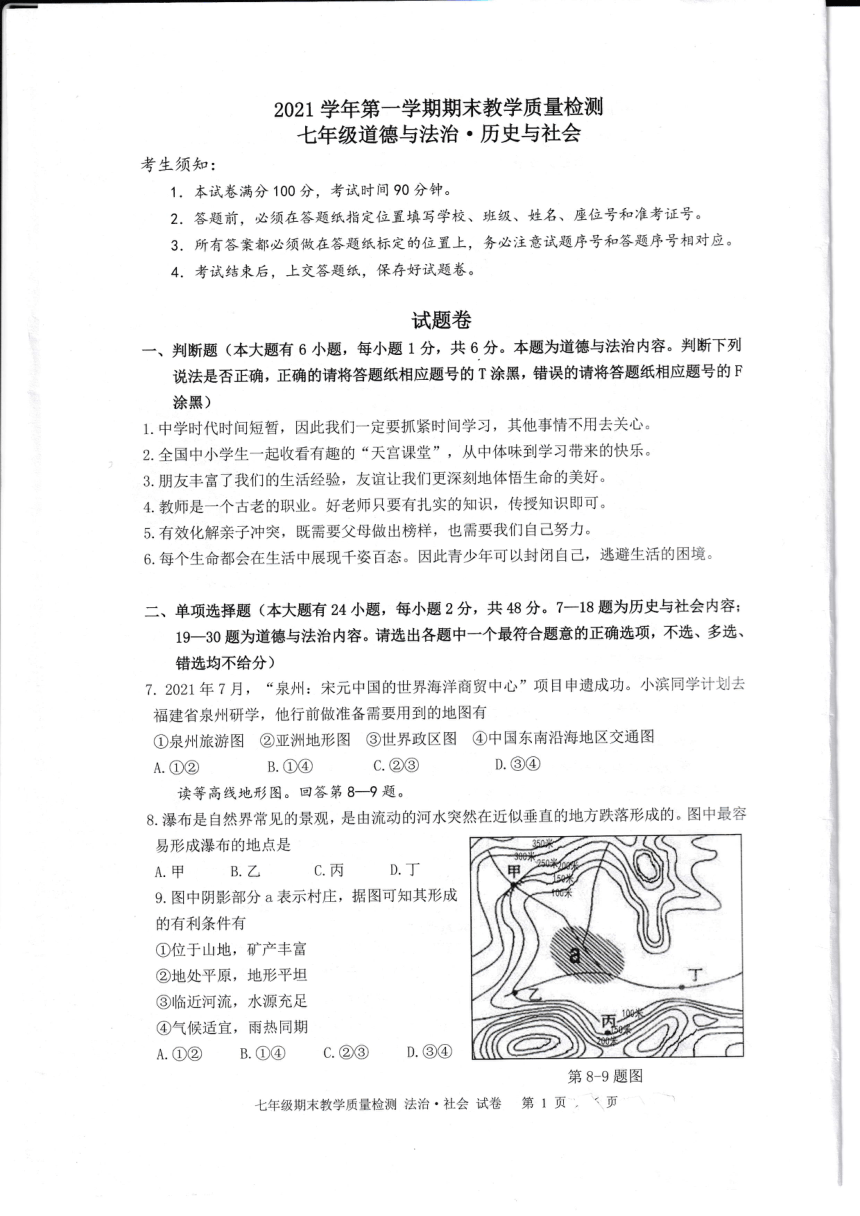 2021 学年第一学期期末教学质量检测
七年级道德与法治·历史与社会
考生须知：
1．本试卷满分 100 分，考试时间 90 分钟。
2．答题前，必须在答题纸指定位置填写学校、班级、姓名、座位号和准考证号。
3．所有答案都必须做在答题纸标定的位置上，务必注意试题序号和答题序号相对应。
4．考试结束后，上交答题纸，保存好试题卷。
试题卷
一、判断题（本大题有 6 小题，每小题 1 分，共 6 分。本题为道德与法治内容。判断下列
说法是否正确，正确的请将答题纸相应题号的 T 涂黑，错误的请将答题纸相应题号的 F
涂黑）
1.中学时代时间短暂，因此我们一定要抓紧时间学习，其他事情不用去关心。
2.全国中小学生一起收看有趣的“天宫课堂”，从中体味到学习带来的快乐。
3.朋友丰富了我们的生活经验，友谊让我们更深刻地体悟生命的美好。
4.教师是一个古老的职业。好老师只要有扎实的知识，传授知识即可。
5.有效化解亲子冲突，既需要父母做出榜样，也需要我们自己努力。
6.每个生命都会在生活中展现千姿百态。因此青少年可以封闭自己，逃避生活的困境。
二、单项选择题（本大题有 24 小题，每小题 2 分，共 48 分。7—18 题为历史与社会内容；
19—30 题为道德与法治内容。请选出各题中一个最符合题意的正确选项，不选、多选、
错选均不给分）
7. 2021 年 7 月，“泉州：宋元中国的世界海洋商贸中心”项目申遗成功。小滨同学计划去
福建省泉州研学，他行前做准备需要用到的地图有
①泉州旅游图 ②亚洲地形图 ③世界政区图 ④中国东南沿海地区交通图
A.①② B.①④ C.②③ D.③④
读等高线地形图。回答第 8—9 题。
8.瀑布是自然界常见的景观，是由流动的河水突然在近似垂直的地方跌落形成的。图中最容
易形成瀑布的地点是
A.甲 B.乙 C.丙 D.丁
9.图中阴影部分 a 表示村庄，据图可知其形成
的有利条件有
①位于山地，矿产丰富
②地处平原，地形平坦
③临近河流，水源充足
④气候适宜，雨热同期
A.①② B.①④ C.②③ D.③④
350米
300米
250米
200米
150米
100米
甲
a
丁
乙
丙
100米
150米
200米
第 8-9 题图
七年级期末教学质量检测 法治·社会 试卷 第 1 页 页